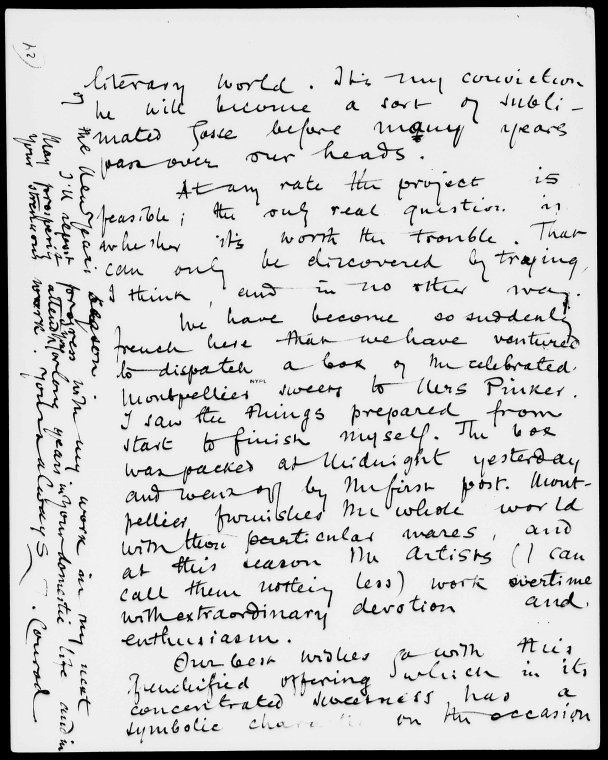 (2
literary world. It's my conviction
he will become a sort of subli-
mated Gosse before many years
pass over our heads.
At any rate the project is
feasible; the only real question is
whether it's worth the trouble. That
can only be discovered by trying,
I think, and in no other way.
We have become so suddenly
french here that we have ventured
to dispatch a box of the celebrated
Montpellier sweets to Mrs Pinker.
NYPL
I saw the things prepared from
start to finish myself. The box
was packed at Midnight yesterday
and went off by the first post. Mont-
pellier furnishes the whole world
with these particular wares, and
at this season the artists (I can
call them nothing less) work overtime
with extraordinary devotion and
enthusiasm.
Our best wishes go with this
frenchified offering which in its
concentrated sweetness has a
symbolic on the occasion
of the New Year's season.
I'll report progress with my work in my next
May prosperity attend for long years in your domestic life and in
your strenuous work. Yours always J. Conrad